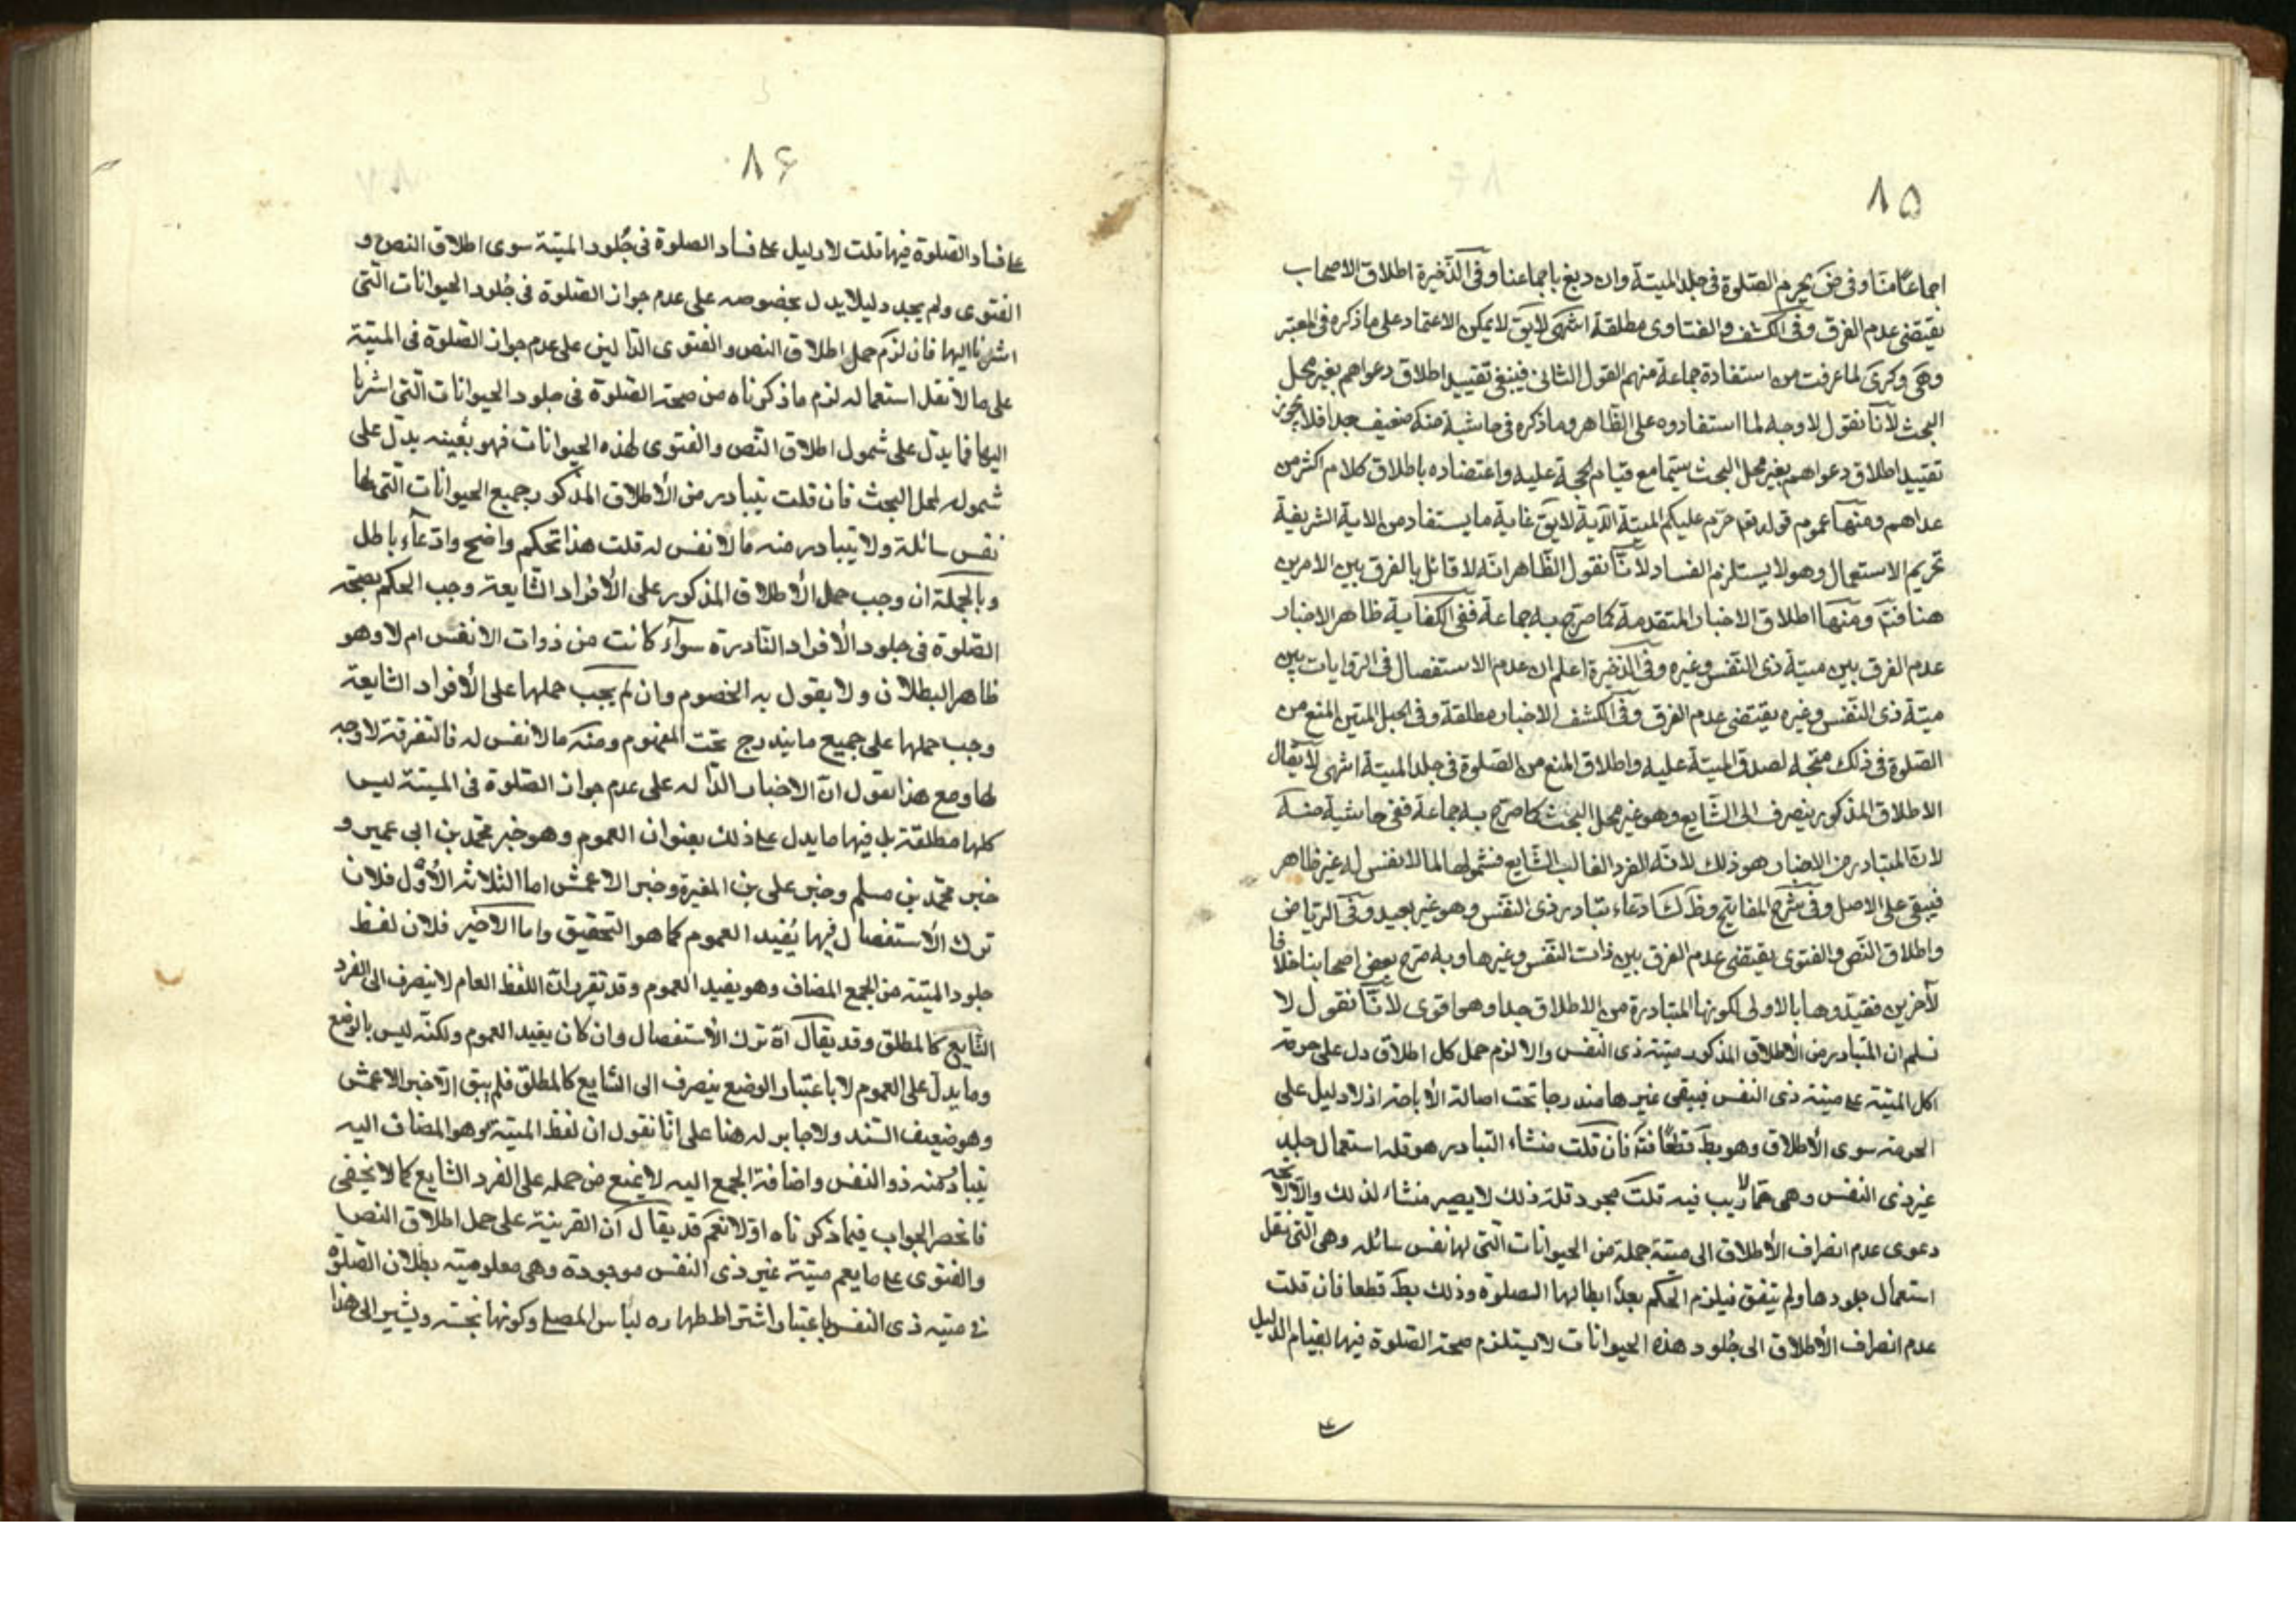 ۸۵
اجماعًا منّا وفى ض كَ يحرم الصّلوة فى جلد الميتة وان دبغ باجماعنا وفى الذّخيرة اطلاق الاصحاب
يقتضى عدم الفرق وفى الكشف والفتاوى مطلقة انتهى لا يق لا يمكن الاعتماد على ما ذكره فى المعتبر
وهَى وكرىَ لما عرفت من استفادة جماعة منهم القول الثانى فينبغى تقييد اطلاق دعواهم بغير محل
البحث لانّا نقول لا وجه لما استفادوه على الظّاهر وما ذكره فى حاشية منه ضعيف جدا فلا يجوز
تقييد اطلاق دعواهم بغير محل البحث سيّما مع قيام الحجة عليه واعتضاده باطلاق كلام اكثر من
عداهم ومنها عموم قوله تعا حرّم عليكم الميتة الآية لا يق غاية ما يستفاد من الاية الشريفة
تحريم الاستعمال وهو لا يستلزم الفساد لانّا نقول الظّاهر انّه لا قائل بالفرق بين الامرين
هنا فتم ومنها اطلاق الاخبار المتقدمة كما صرّح به جماعة ففى الكفاية ظاهر الاخبار
عدم الفرق بين ميتة ذى النّفس وغيره وفى الذخيرة اعلم ان عدم الاستفصال فى الرّوايات بين
ميتة ذى النّفس وغيره يقتضى عدم الفرق وفى الكشف الاخبار مطلقة وفى الحبل المتين المنع من
الصّلوة فى ذلك متّجه لصدق الميتة عليه واطلاق المنع من الصّلوة فى جلد الميتة انتهى لا يقال
الاطلاق المذكور ينصرف الى الشّايع وهو غير محل البحث كما صرّح به جماعة ففى حاشية منه
لان المتبادر من الاخبار هو ذلك لانّه الفرد الغالب الشّايع فشمولها لما لا نفس له غير ظاهر
فيبقى على الاصل وفى شرح المفاتيح وظَ كَ ادّعاء تبادر ذى النّفس وهو غير بعيد وفى الرّياض
واطلاق النّص والفتوى يقتضى عدم الفرق بين ذات النّفس وغيرها وبه صرّح بعض اصحابنا خلافا
لآخرين فقيّدوها بالاولى لكونها المتبادرة من الاطلاق جدا وهو اقوى لانّا نقول لا
نسلم ان المتبادر من الأطلاق المذكور ميتة ذى النفس والا لزم حمل كل اطلاق دل على حرمة
اكل الميتة على ميتة ذى النفس فيبقى غيرها مندرجا تحت اصالة الأباحة اذ لا دليل على
الحرمة سوى الأطلاق وهو بط قطعًا فتم فان قلت منشاء التبادر هو قلة استعمال جلد
غير ذى النفس وهى ممّا لا ريب فيه قلت مجرد قلة ذلك لا يصير منشاء لذلك والّا لاتجه
دعوى عدم انصراف الأطلاق الى ميتة جملة من الحيوانات التى لها نفس سائلة وهى التى نقل
استعمال جلودها ولم يتفق فيلزم الحكم بعدم ابطالها الصلوة وذلك بط قطعا فان قلت
عدم انصراف الأطلاق الى جلود هذه الحيوانات لا يستلزم صحة الصّلوة فيها لقيام الدليل
۸۶
على فساد الصّلوة فيها قلت لا دليل على فساد الصلوة فى جُلود الميتة سوى اطلاق النص و
الفتوى ولم يجد دليلا يدل بخصوصه على عدم جواز الصّلوة فى جُلود الحيوانات الّتى
اشرنا اليها فان لزم حمل اطلاق النص والفتوى الدالين على عدم جواز الصّلوة فى الميتة
على ما لا نقل استعماله لزم ما ذكرناه من صحة الصّلوة فى جلود الحيوانات الّتى اشرنا
اليها فما يدّل على شمول اطلاق النّص والفتوى لهذه الحيوانات فهو بعينه يدّل على
شموله لمحل البحث فان قلت يتبادر من الأطلاق المذكور جميع الحيوانات الّتى لها
نفس سائلة ولا يتبادر منه ما لا نفس له قلت هذا تحكم واضح وادّعآء باطل
وبالجملة ان وجب حمل الأطلاق المذكور على الأفراد الشّايعة وجب الحكم بصحّة
الصّلوة فى جلود الأفراد النّادرة سوآء كانت من ذوات الانفس ام لا وهو
ظاهر البطلان ولا يقول به الخصوم وان لم يجب حملها على الأفراد الشّايعة
وجب حملها على جميع ما يندرج تحت المفهوم ومنه ما لا نفس له فالتفرقة لا وجه
لها ومع هذا نقول انّ الاخبار الدّالة على عدم جواز الصّلوة فى الميتة ليس
كلها مطلقة بل فيها ما يدل على ذلك بعنوان العموم وهو خبر محمّد بن ابى عمير و
خبر محمّد بن مسلم وخبر على بن المغيرة وخبر الاعمش اما الثلاثة الأوَل فلان
ترك الأستفصال فيها يُفيد العموم كما هو التحقيق واما الاخير فلان لفظ
جلود الميتة من الجمع المضاف وهو يفيد العموم وقد تقرر انّ اللّفظ العام لا ينصرف الى الفرد
الشّايع كالمطلق وقد يقال انّ ترك الأستفصال وان كان يفيد العموم ولكنّه ليس بالوضع
وما يدلّ على العموم لا باعتبار الوضع ينصرف الى الشّايع كالمطلق فلم يبق الّا خبر الاعمش
وهو ضعيف السّند ولا جابر له هنا على انّا نقول ان لفظ الميتة وهو المضاف اليه
يتبادر منه ذو النفس واضافة الجمع اليه لا يمنع من حمله على الفرد الشّايع كما لا يخفى
فانحصر الجواب فيما ذكرناه اوّلا نعم قد يقال ان القرينة على حمل اطلاق النص
والفتوى على ما يعم ميتة غير ذى النفس موجودة وهى معلومية بطلان الصّلوة
فى ميتة ذى النفس باعتبار اشتراط طهارة لباس المصلى وكونها نجسة ويشير الى هذا